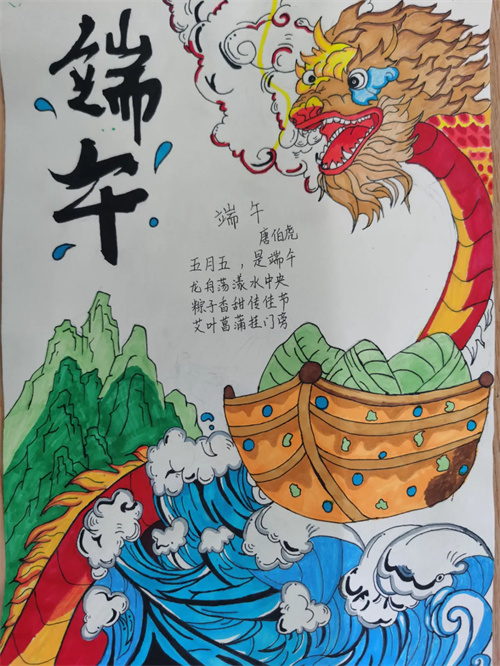 端午
端午
唐伯虎
五月五，是端午
龙舟荡漾水中央
粽子香甜传佳节
艾叶菖蒲挂门旁